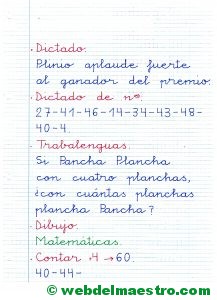 . Dictado.
Plinio aplaude fuerte
al ganador del premio.
. Dictado de nos.
27-41-46-14-34-43-48-
40-4.
. Trabalenguas.
Si Pancha Plancha
con cuatro planchas,
¿con cuántas planchas
plancha Pancha?
. Dibujo.
. Matemáticas.
. Contar 4 → 60.
40-44-
© webdelmaestro.com